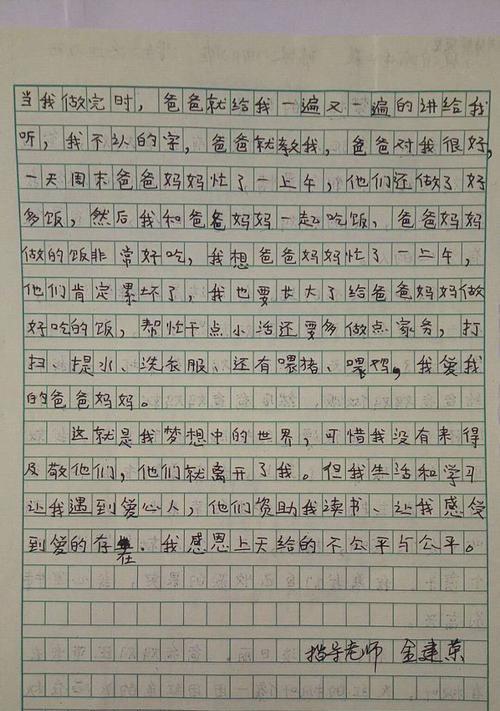 当我做完时，爸爸就给我一遍又一遍的讲给我
听，我不认的字，爸爸就教我，爸爸对我很好，
一天周末爸爸妈妈忙了一上午，他们还做了好
多饭，然后我和爸爸妈妈一起吃饭，爸爸妈妈
做的饭非常好吃，我想爸爸妈妈忙了一上午，
他们肯定累坏了，我也要长大了给爸爸妈妈做
好吃的饭，帮忙干点小活还要多做点家务，打
扫、提水、洗衣服、还有喂猪、喂鸡，我爱我
的爸爸妈妈。
这就是我梦想中的世界，可惜我没有来得
及敬他们，他们就离开了我。但我生活和学习
让我遇到爱心人，他们资助我读书、让我感受
到爱的存在．我感恩上天给的不公平与公平。
指导老师 金建荣